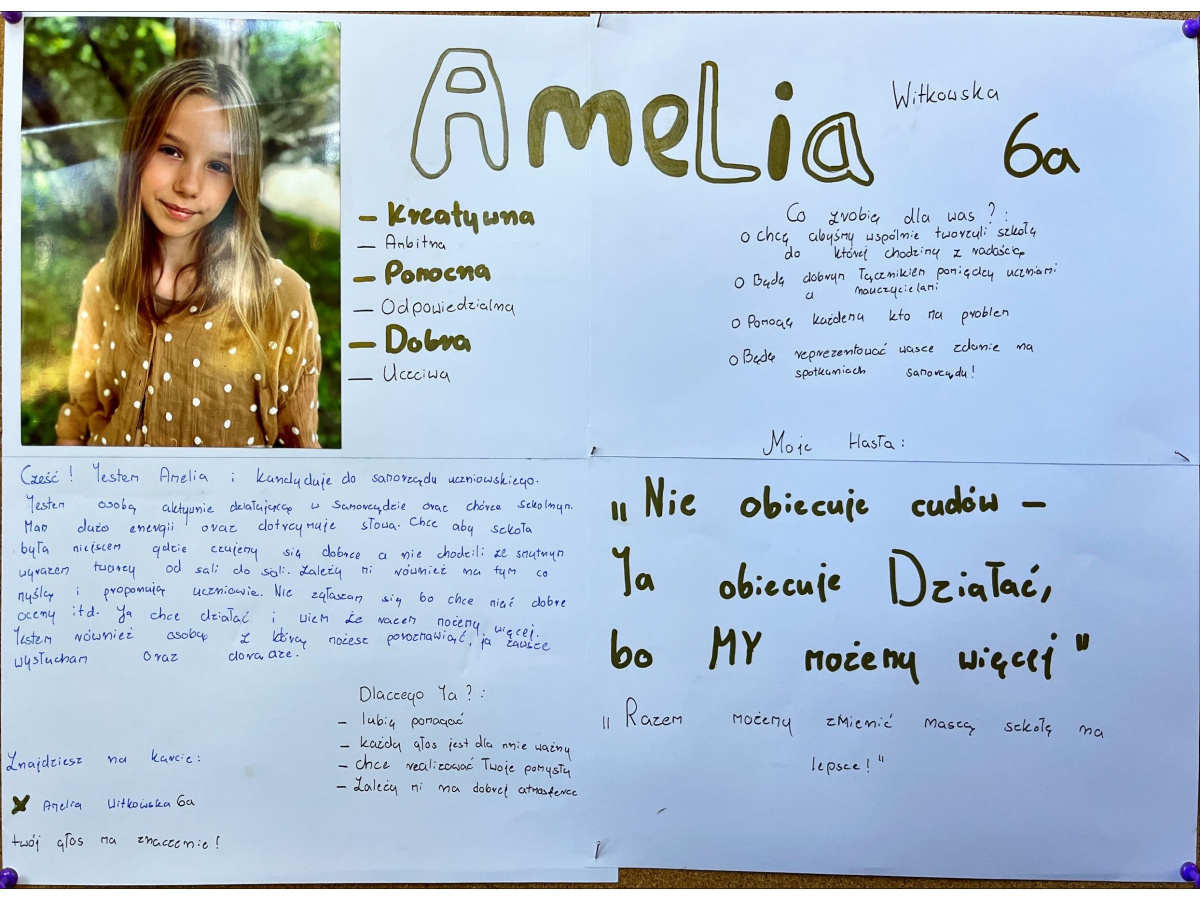 Amelia Witkowska
6a
- Kreatywna
- Ambitna
- Pomocna
- Odpowiedzialna
- Dobra
- Uczciwa
Co zrobię dla was ? :
o Chcę abyśmy wspólnie tworzyli szkołę
do której chodzimy z radością
o Będę dobrym łącznikiem pomiędzy uczniami
a nauczycielami
o Pomogę każdemu kto ma problem
o Będę reprezentować wasze zdanie na
spotkaniach samorządu!
Moje Hasła:
„Nie obiecuje cudów -
Ja obiecuje Działać,
bo MY możemy więcej"
„Razem możemy zmienić naszą szkołę na
lepsze!"
Cześć! Jestem Amelia i kandyduje do samorządu uczniowskiego.
Jestem osobą aktywnie działającą w Samorządzie oraz chórze szkolnym.
Mam dużo energii oraz dotrzymuje słowa. Chce aby szkoła
była miejscem gdzie czujemy się dobrze a nie chodzili ze smutnym
wyrazem twarzy od sali do sali. Zależy mi również na tym co
myślą i proponują uczniowie. Nie zgłaszam się bo chce mieć dobre
oceny itd. Ja chce działać i wiem że razem możemy więcej.
Jestem również osobą z którą możesz porozmawiać, ja zawsze
wysłucham oraz doradze.
Dlaczego Ja?:
- lubię pomagać
- każdy głos jest dla mnie ważny
- chce realizować Twoje pomysły
- Zależy mi na dobrej atmosferze
Znajdziesz na karcie:
x Amelia Witkowska 6a
twój głos ma znaczenie!